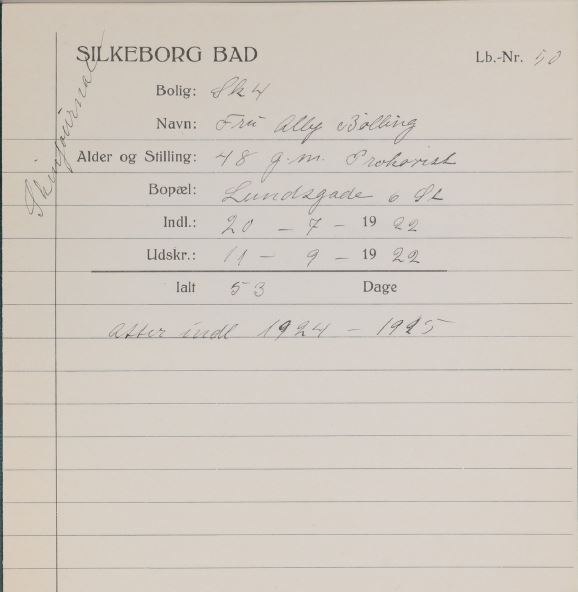 SILKEBORG BAD
Lb.-Nr. 50
Skinjournal
Bolig: Sk 4
Navn: Fru Ally Bolling
Alder og Stilling: 48 g.m. Prokurist
Bopæl: Lundsgade 6 St
Indl.: 20 - 7 - 19 22
Udskr.: 11 - 9 - 19 22
Ialt 53 Dage
atter indl 1924 - 1925